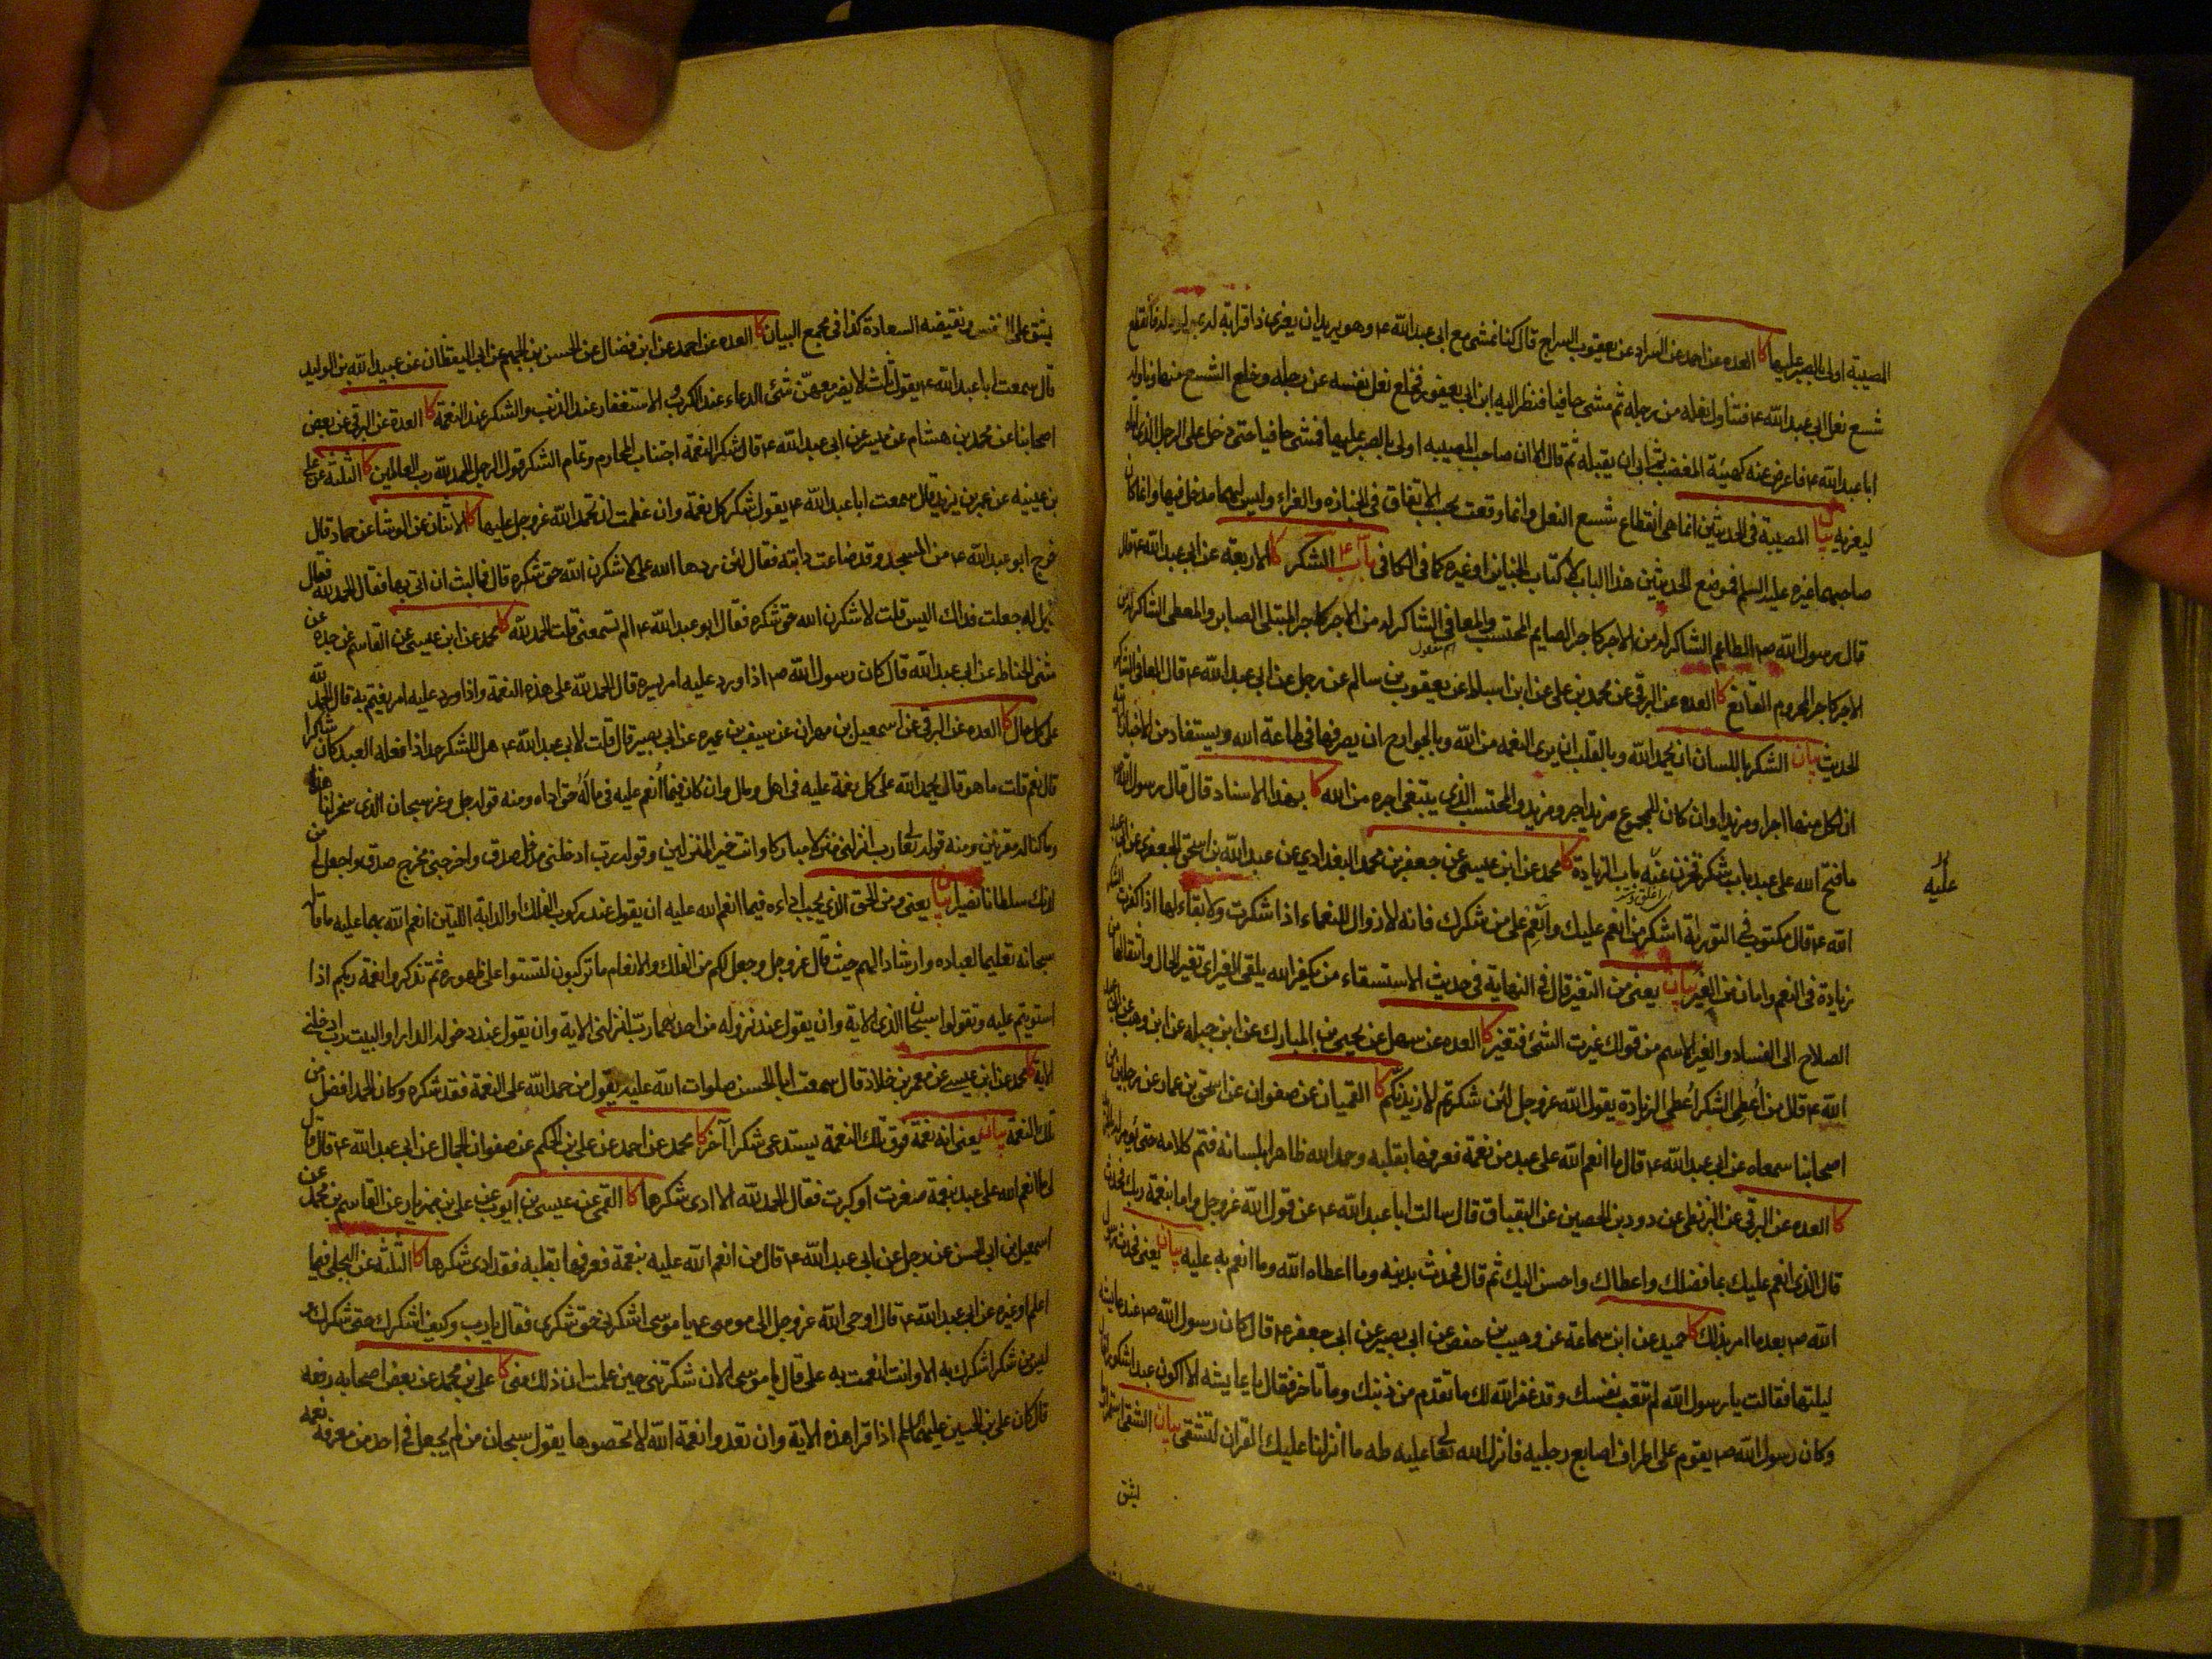 المصيبة اولى بالصبر عليها كا العده عن احمد عن السراد عن يعقوب السراج قال كنا نمشي مع ابى عبد الله ع وهو يريد ان يعزى ذا قرابة له بمولود له فانقطع
شسع نعل ابى عبد الله ع فتناول نعله من رجله ثم مشى حافيا فنظر اليه ابن ابى يعفور فخلع نعل نفسه عن رجله وخلع الشسع منها وناولها
ابا عبد الله ع فاعرض عنه كهيئة المغضب ثم ابى ان يقبله ثم قال الا ان صاحب المصيبه اولى بالصبر عليها فمشى حافيا حتى دخل على الرجل الذى اتاه
ليعزيه بيان المصيبة فى الحديثين انما هى انقطاع شسع النعل وانما وقعت بحسب الاتفاق فى الجنازه والعزاء وليس لهما مدخل فيها وانما كان
صاحبهما غيره عليه السلم فموضع الحديثين هذا الباب لا كتاب الجنايز او غيره كما فى الكافى باب الشكر كا الاربعة عن ابى عبد الله ع قال
قال رسول الله ص الطاعم الشاكر له من الاجر كاجر الصايم المحتسب والمعافى الشاكر له من الاجر كاجر المبتلى الصابر والمعطى الشاكر له من
الاجر كاجر المحروم القانع كا العده عن البرقى عن محمد بن على عن ابن اسباط عن يعقوب بن سالم عن رجل عن ابى عبد الله ع قال المعافى الشاكر
الحديث بيان الشكر باللسان ان يحمد الله وبالقلب ان يرى النعمه من الله وبالجوارح ان يصرفها فى طاعة الله ويستفاد من الاخبار الاتية
ان لكل منها اجرا ومزيدا وان كان للمجموع مزيد اجر ومزيد والمحتسب الذى يبتغى اجره من الله كا بهذا الاسناد قال قال رسول الله ص
ما فتح الله على عبد باب شكر فخزن عنه باب الزيادة كا محمد عن ابن عيسى عن جعفر بن محمد البغدادى عن عبد الله بن اسحق الجعفرى عن ابى عبد
الله ع قال مكتوب فى التوراة اشكر من انعم عليك وانعم على من شكرك فانه لا زوال للنعماء اذا شكرت ولا بقاء لها اذا كفرت الشكر
زيادة فى النعم وامان من الغير بيان يعنى من التغير قال فى النهاية فى حديث الاستسقاء من يكفر الله يلقى الغير اى تغير الحال وانتقالها من
الصلاح الى الفساد والغير الاسم من قولك غيرت الشئ فتغير كا العده عن سهل عن يحيى بن المبارك عن ابن جبله عن ابن وهب عن ابى عبد
الله ع قال من اعطى الشكر اعطى الزيادة يقول الله عز وجل لئن شكرتم لازيدنكم كا القميان عن صفوان عن اسحق بن عمار عن رجلين من
اصحابنا سمعاه عن ابى عبد الله ع قال ما انعم الله على عبد من نعمة فعرفها بقلبه وحمد الله ظاهرا بلسانه فتم كلامه حتى يؤمر له بالمزيد
كا العده عن البرقى عن البزنطى عن دود بن الحصين عن البقباق قال سالت ابا عبد الله ع عن قول الله عز وجل واما بنعمة ربك فحدث
قال الذى انعم عليك بما فضلك واعطاك واحسن اليك ثم قال فحدث بدينه وما اعطاه الله وما انعم به عليه بيان يعنى فحدث رسول
الله ص بعد ما امر بذلك كا حميد عن ابن سماعة عن وهيب بن حفص عن ابى بصير عن ابى جعفر ع قال كان رسول الله ص عند عايشة
ليلتها فقالت يا رسول الله لم تتعب نفسك وقد غفر الله لك ما تقدم من ذنبك وما تاخر فقال يا عايشه الا اكون عبدا شكورا قال
وكان رسول الله ص يقوم على اطراف اصابع رجليه فانزل الله تعا عليه طه ما انزلنا عليك القران لتشقى بيان الشقى
يشق
عليه
يشق على النفس ونقيضه السعادة كذا فى مجمع البيان كا العده عن احمد عن ابن فضال عن الحسن بن الجهم عن ابى اليقظان عن عبيد الله بن الوليد
قال سمعت ابا عبد الله ع يقول ثلاث لا يضر معهن شئ الدعاء عند الكرب والاستغفار عند الذنب والشكر عند النعمة كا العدة عن البرقى عن بعض
اصحابنا عن محمد بن هشام عن ميسر عن ابى عبد الله ع قال شكر النعمة اجتناب المحارم وتمام الشكر قول الرجل الحمد لله رب العالمين كا الثلثة عن على
بن عيينه عن عمر بن يزيد قال سمعت ابا عبد الله ع يقول شكر كل نعمة وان عظمت ان تحمد الله عز وجل عليها كا الاثنان عن الوشا عن حماد قال
خرج ابو عبد الله ع من المسجد وقد ضاعت دابته فقال لئن ردها الله على لاشكرن الله حق شكره قال فما لبث ان اتى بها فقال الحمد لله فقال
قايل له جعلت فداك اليس قلت لاشكرن الله حق شكره فقال ابو عبد الله ع الم تسمعنى قلت الحمد لله كا محمد عن ابن عيسى عن القاسم عن جده عن
مثنى الحناط عن ابى عبد الله قال كان رسول الله ص اذا ورد عليه امر يسره قال الحمد لله على هذه النعمة واذا ورد عليه امر يغتم به قال الحمد لله
على كل حال كا العده عن البرقى عن اسمعيل بن مهران عن سيف بن عميره عن ابى بصير قال قلت لابى عبد الله ع هل للشكر حد اذا فعله العبد كان شاكرا
قال نعم قلت ما هو قال يحمد الله على كل نعمة عليه فى اهل ومال وان كان فيما انعم عليه فى ماله حق اداه ومنه قوله جل وعز سبحان الذى سخر لنا هذا
وما كنا له مقرنين ومنه قوله تعا رب انزلنى منزلا مباركا وانت خير المنزلين وقوله رب ادخلنى مدخل صدق واخرجنى مخرج صدق واجعل لى من
لدنك سلطانا نصيرا بيان يعنى ومن الحق الذى يجب اداءه فيما انعم الله عليه ان يقول عند ركوب الفلك والدابة اللتين انعم الله بهما عليه ما قاله
سبحانه تعليما لعباده وارشادا لهم حيث قال عز وجل وجعل لكم من الفلك والانعام ما تركبون لتستووا على ظهوره ثم تذكروا نعمة ربكم اذا
استويتم عليه وتقولوا سبحان الذى الاية وان يقول عند نزوله من احدهما رب انزلنى الاية وان يقول عند دخوله الدار او البيت رب ادخلنى
الاية كا محمد عن ابن عيسى عن معمر بن خلاد قال سمعت ابا الحسن صلوات الله عليه يقول من حمد الله على النعمة فقد شكره وكان الحمد افضل من
تلك النعمة بيان يعنى انه نعمة فوق تلك النعمة يستدعى شكرا آخر كا محمد عن احمد عن على بن الحكم عن صفوان الجمال عن ابى عبد الله ع قال قال
لى ما انعم الله على عبد بنعمة صغرت او كبرت فقال الحمد لله الا ادى شكرها كا القمى عن عيسى بن ايوب عن على بن مهزيار عن القاسم بن محمد عن
اسمعيل بن ابى الحسن عن رجل عن ابى عبد الله ع قال من انعم الله عليه بنعمة فعرفها بقلبه فقد ادى شكرها كا الثلثه عن البجلى فيما
اعلم او غيره عن ابى عبد الله ع قال اوحى الله عز وجل الى موسى ع يا موسى اشكرنى حق شكرى فقال يا رب وكيف اشكرك حق شكرك و
ليس من شكر اشكرك به الا وانت انعمت به على قال يا موسى الان شكرتنى حين علمت ان ذلك منى كا على بن محمد عن بعض اصحابه رفعه
قال كان على بن الحسين عليهما السلم اذا قرا هذه الاية وان تعدوا نعمة الله لا تحصوها يقول سبحان من لم يجعل فى احد من معرفة نعمه